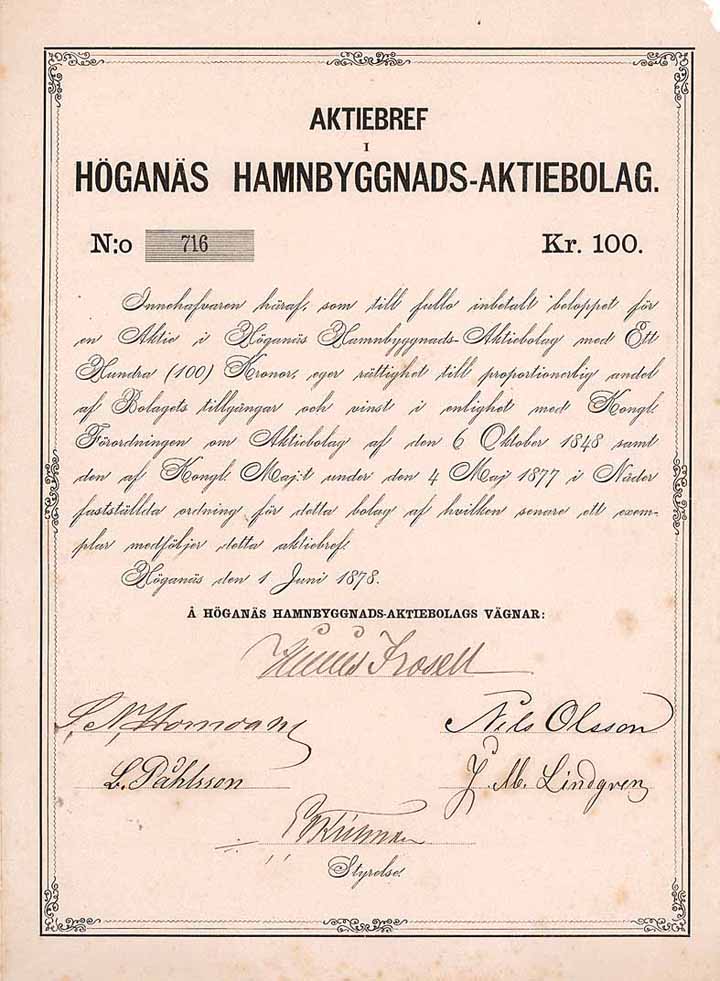 AKTIEBREF
I
HÖGANÄS HAMNBYGGNADS-AKTIEBOLAG.
N:o 716 Kr. 100.
Innehafvaren häraf, som till fullo inbetalt beloppet för
en Aktie i Höganäs Hamnbyggnads-Aktiebolag med Ett
Hundra (100) Kronor, eger rättighet till proportionerlig andel
af Bolagets tillgångar och vinst i enlighet med Kongl.
Förordningen om Aktiebolag af den 6 Oktober 1848 samt
den af Kongl. Maj:t under den 4 Maj 1877 i Nåder
fastställda ordning för detta bolag af hvilken senare ett exem-
plar medföljer detta aktiebref.
Höganäs den 1 Juni 1878.
Å HÖGANÄS HAMNBYGGNADS-AKTIEBOLAGS VÄGNAR:
Frosell
Nils Olsson
L. Påhlsson J. M. Lindgren
Styrelse.